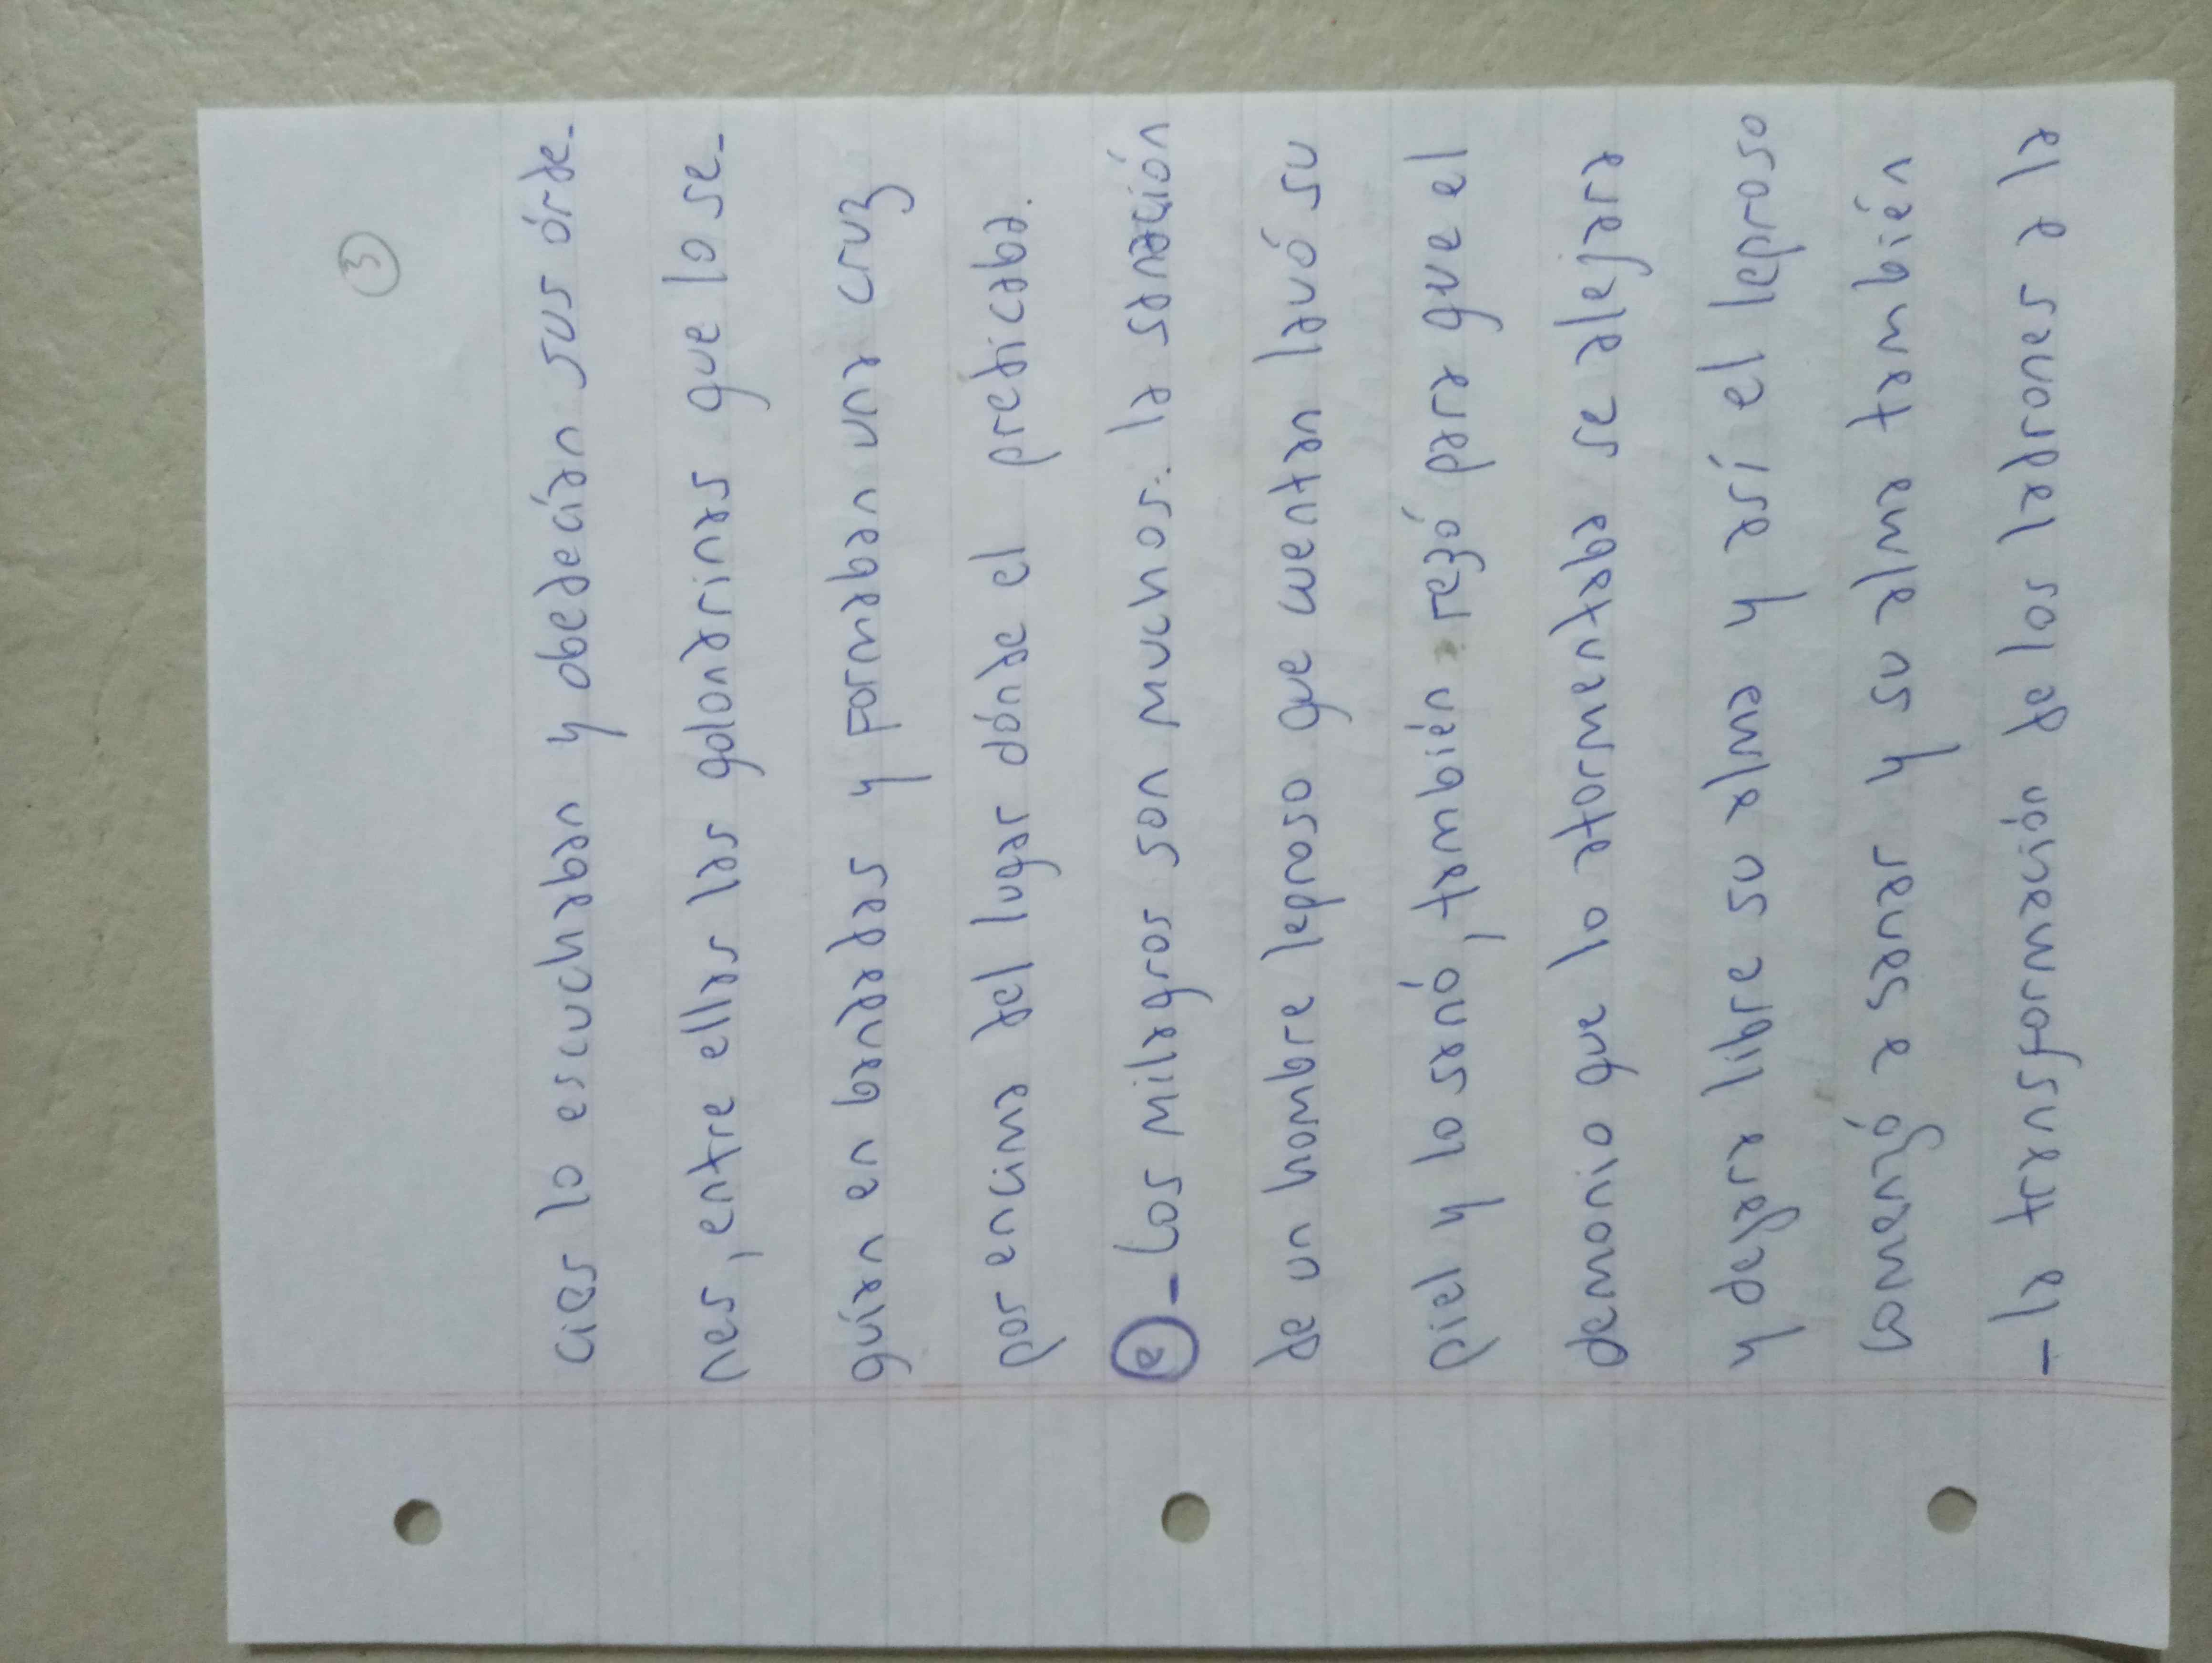 3
cias el escuchaban y obedecían sus órde-
nes, entre ellas las golondrinas que lo se-
guían en bandadas y formaban una cruz
por encima del lugar dónde el predicaba.
e - Los milagros son muchos: la sanación
de un hombre leproso que cuentan lavó su
piel y lo sanó, también rezó para que el
demonio que lo atormentaba se alejara
y dejara libre su alma y así el leproso
comenzó a sanar y su alma también
- la transformación de los ladrones a la